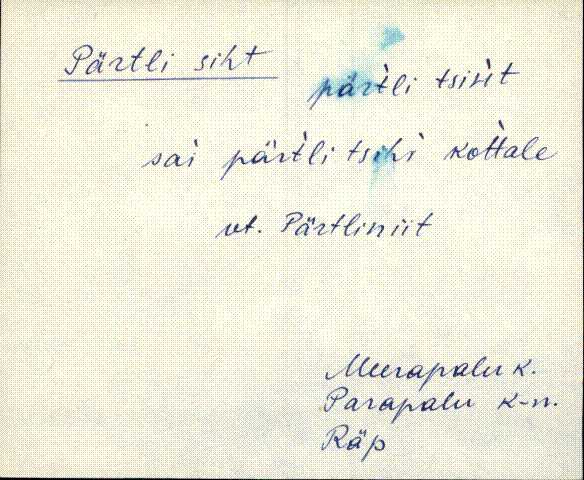 Pärtli siht
pärtli tsiht
sai pärtli tsihi kottale
vt. Pärtliniit
Meerapalu k.
Parapalu k-n.
Räp